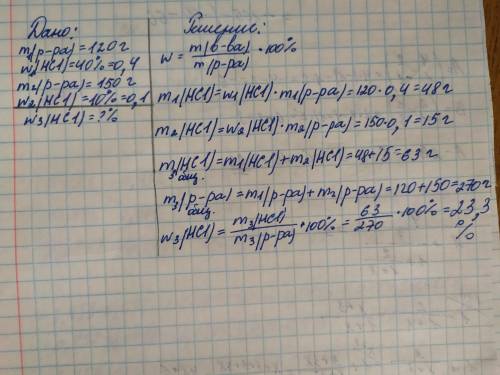 Дано:
m(р-ра)=120г
w(HCl)=40%=0,4
m₂(р-ра)=150г
w₂(HCl)=10%=0,1
w₃(HCl)=?%
Решение:
w= m(в-ва)/m(р-ра) ·100%
m₁(HCl)=w₁(HCl)·m₁(р-ра)=120·0,4=48г
m₂(HCl)=w₂(HCl)·m₂(р-ра)=150·0,1=15г
m₃ общ.(HCl)=m₁(HCl)+m₂(HCl)=48+15=63г
m₃ общ.(р-ра)=m₁(р-ра)+m₂(р-ра)=120+150=270г
w₃(HCl)= m₃(HCl)/m₃(р-ра) ·100%= 63/270 ·100%=23,3%